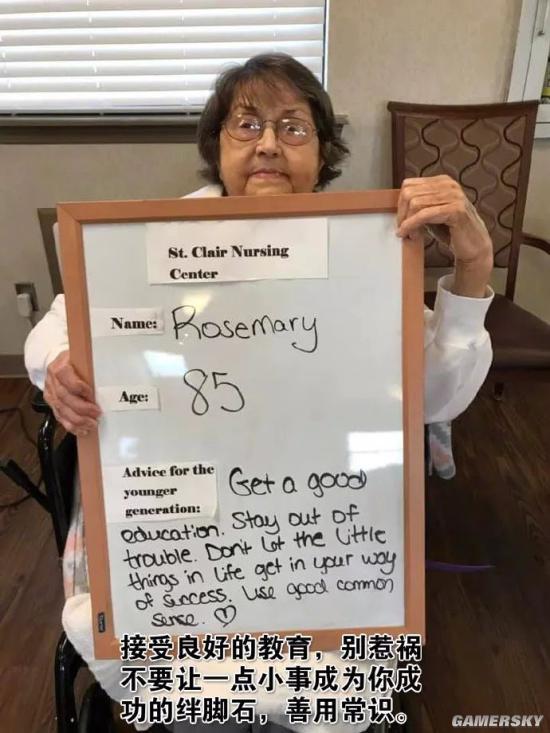 St. Clair Nursing
Center
Name: Rosemary
Age: 85
Advice for the
younger
generation: Get a good
education. Stay out of
trouble. Don't let the little
things in life get in your way
of success. Use good common
sense. ♡
接受良好的教育，别惹祸
不要让一点小事成为你成
功的绊脚石，善用常识。
GAMERSKY